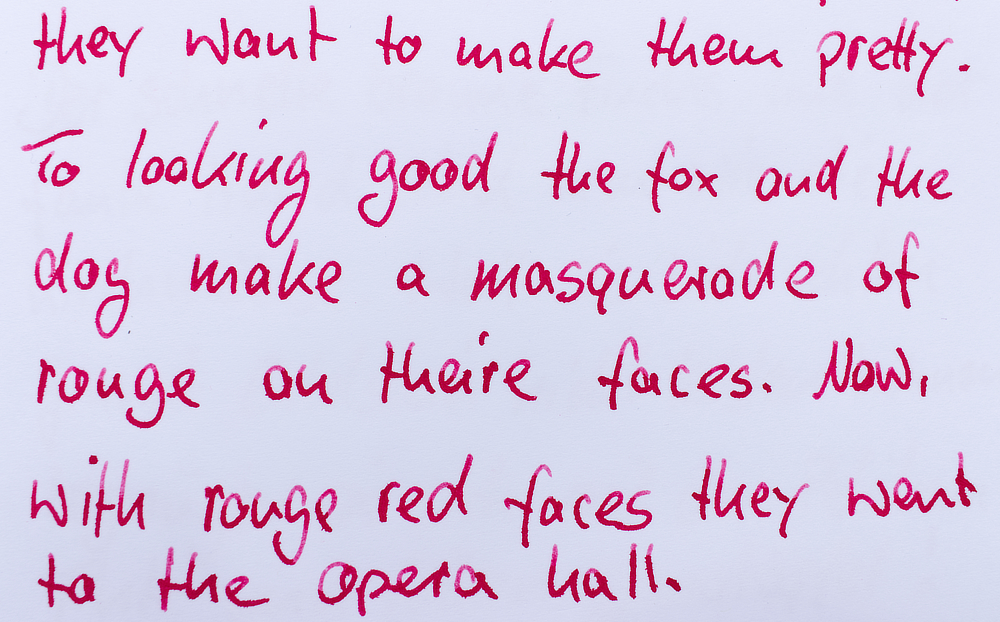 they want to make them pretty.
To looking good the fox and the
dog make a masquerade of
rouge on theire faces. Now,
with rouge red faces they went
to the opera hall.